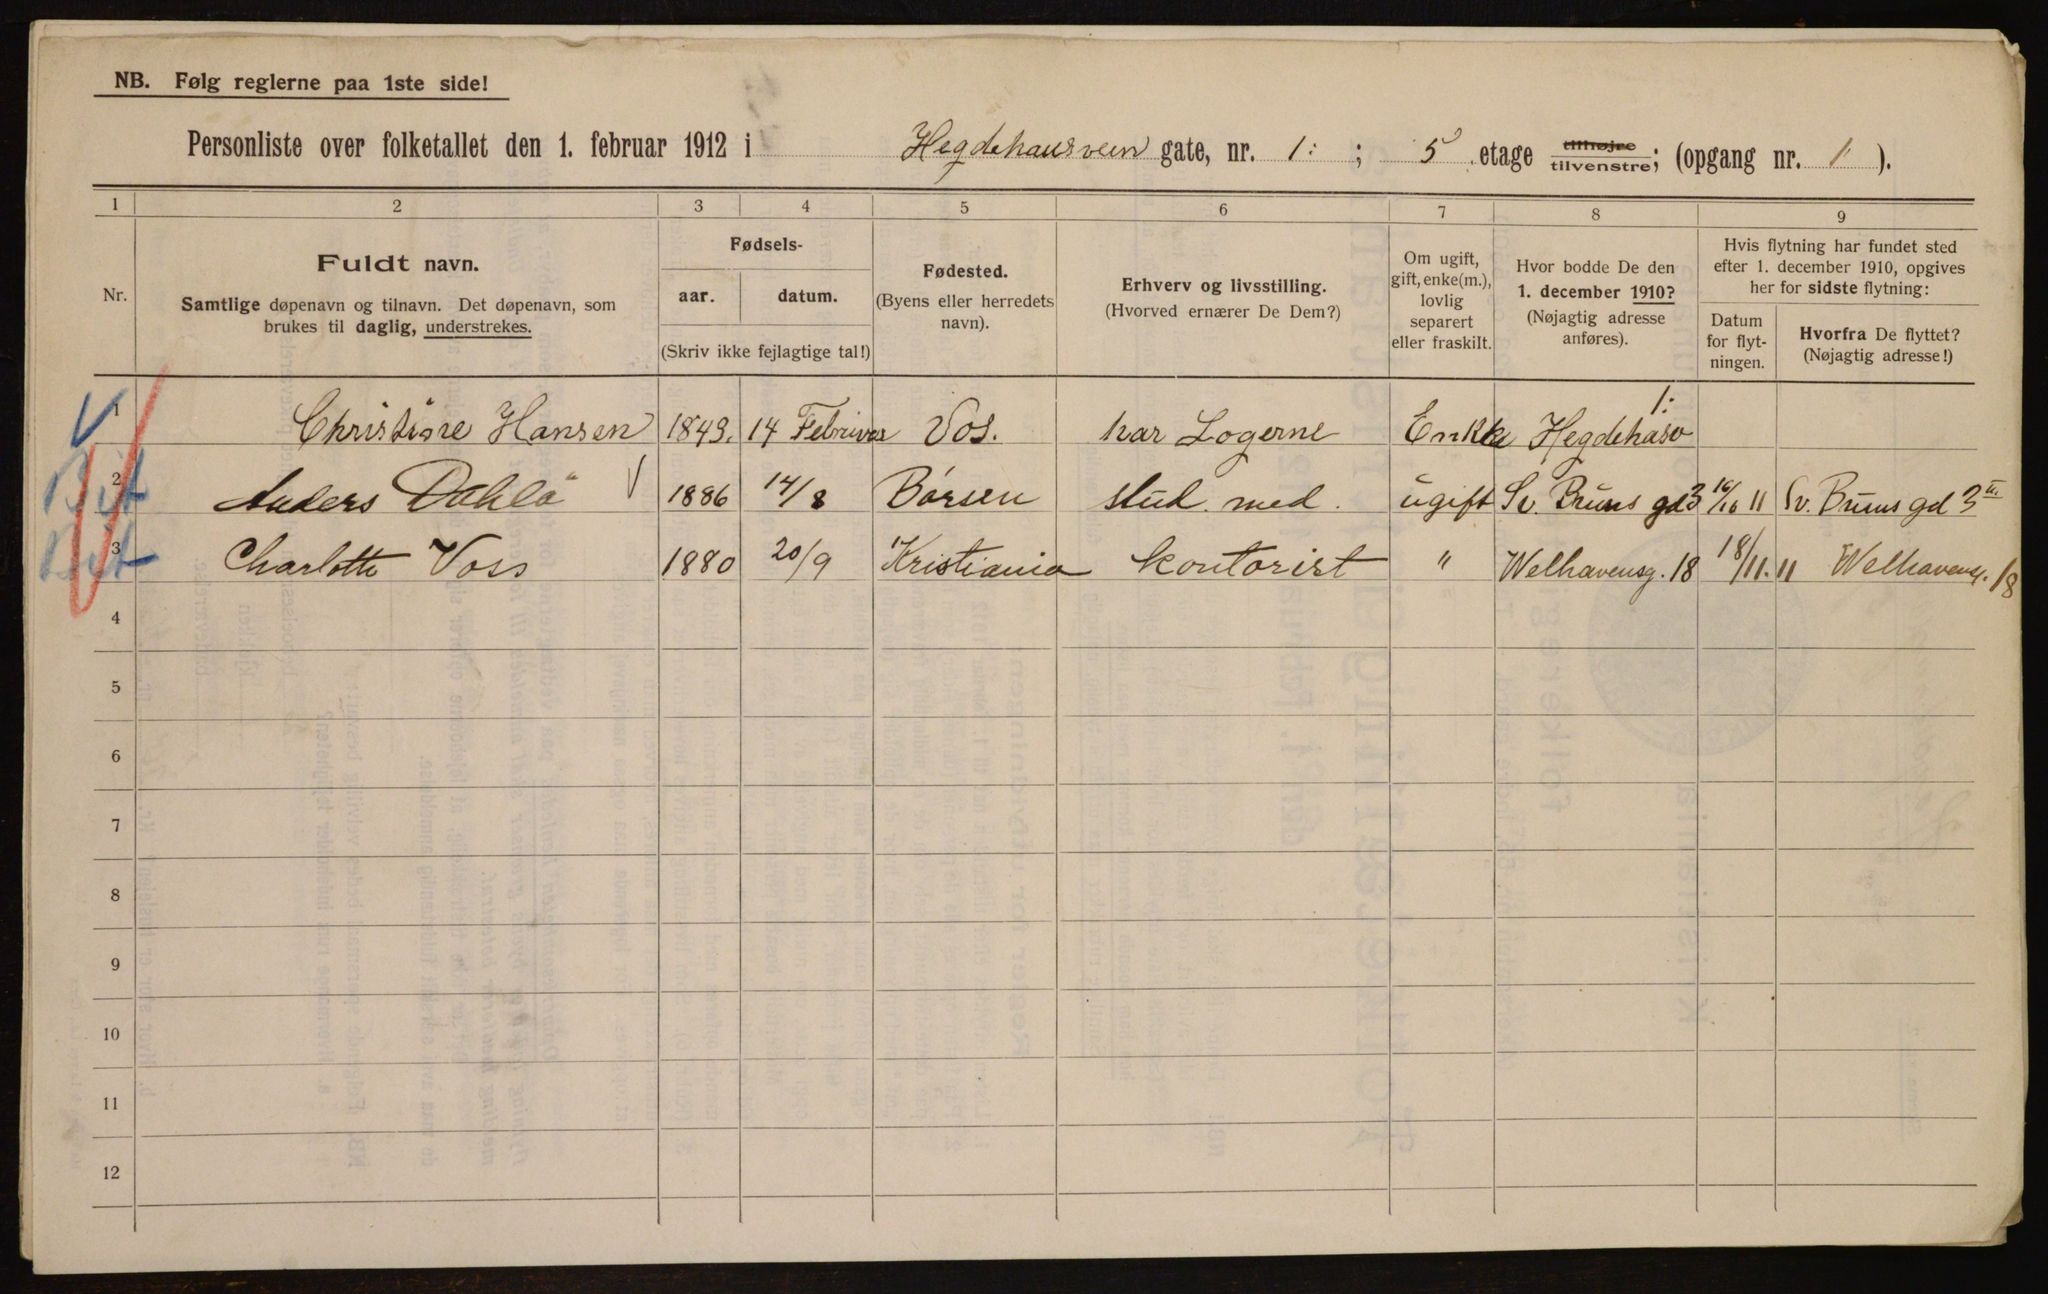 NB. Følg reglerne paa 1ste side!
Personliste over folketallet den 1. februar 1912 i Hegdehausveien gate, nr. 1: ; 5 etage tilhøjre tilvenstre; (opgang nr. 1 ).
1 2 3 4 5 6 7 8 9
Nr.
Fuldt navn.
Samtlige døpenavn og tilnavn. Det døpenavn, som
brukes til daglig, understrekes.
Fødsels-
aar. datum.
(Skriv ikke fejlagtige tal!)
Fødested.
(Byens eller herredets
navn).
Erhverv og livsstilling.
(Hvorved ernærer De Dem?)
Om ugift,
gift, enke(m.),
lovlig
separert
eller fraskilt.
Hvor bodde De den
1. december 1910?
(Nøjagtig adresse
anføres).
Hvis flytning har fundet sted
efter 1. december 1910, opgives
her for sidste flytning:
Datum
for flyt-
ningen.
Hvorfra De flyttet?
(Nøjagtig adresse!)
1 Christine Hansen 1843. 14 Februar Vos. har Logerne Enkke Hegdehasv 1:
2 Anders Dahlø 1886 14/8 Børsen stud. med. ugift Sv. Bruns gd 3 16/10 11 Sv. Bruns gd 3 II.
3 Charlotte Voss 1880 20/9 Kristiania kontorist " Welhavensg. 18 18/11. 11 Welhavensg. 18
4
5
6
7
8
9
10
11
12